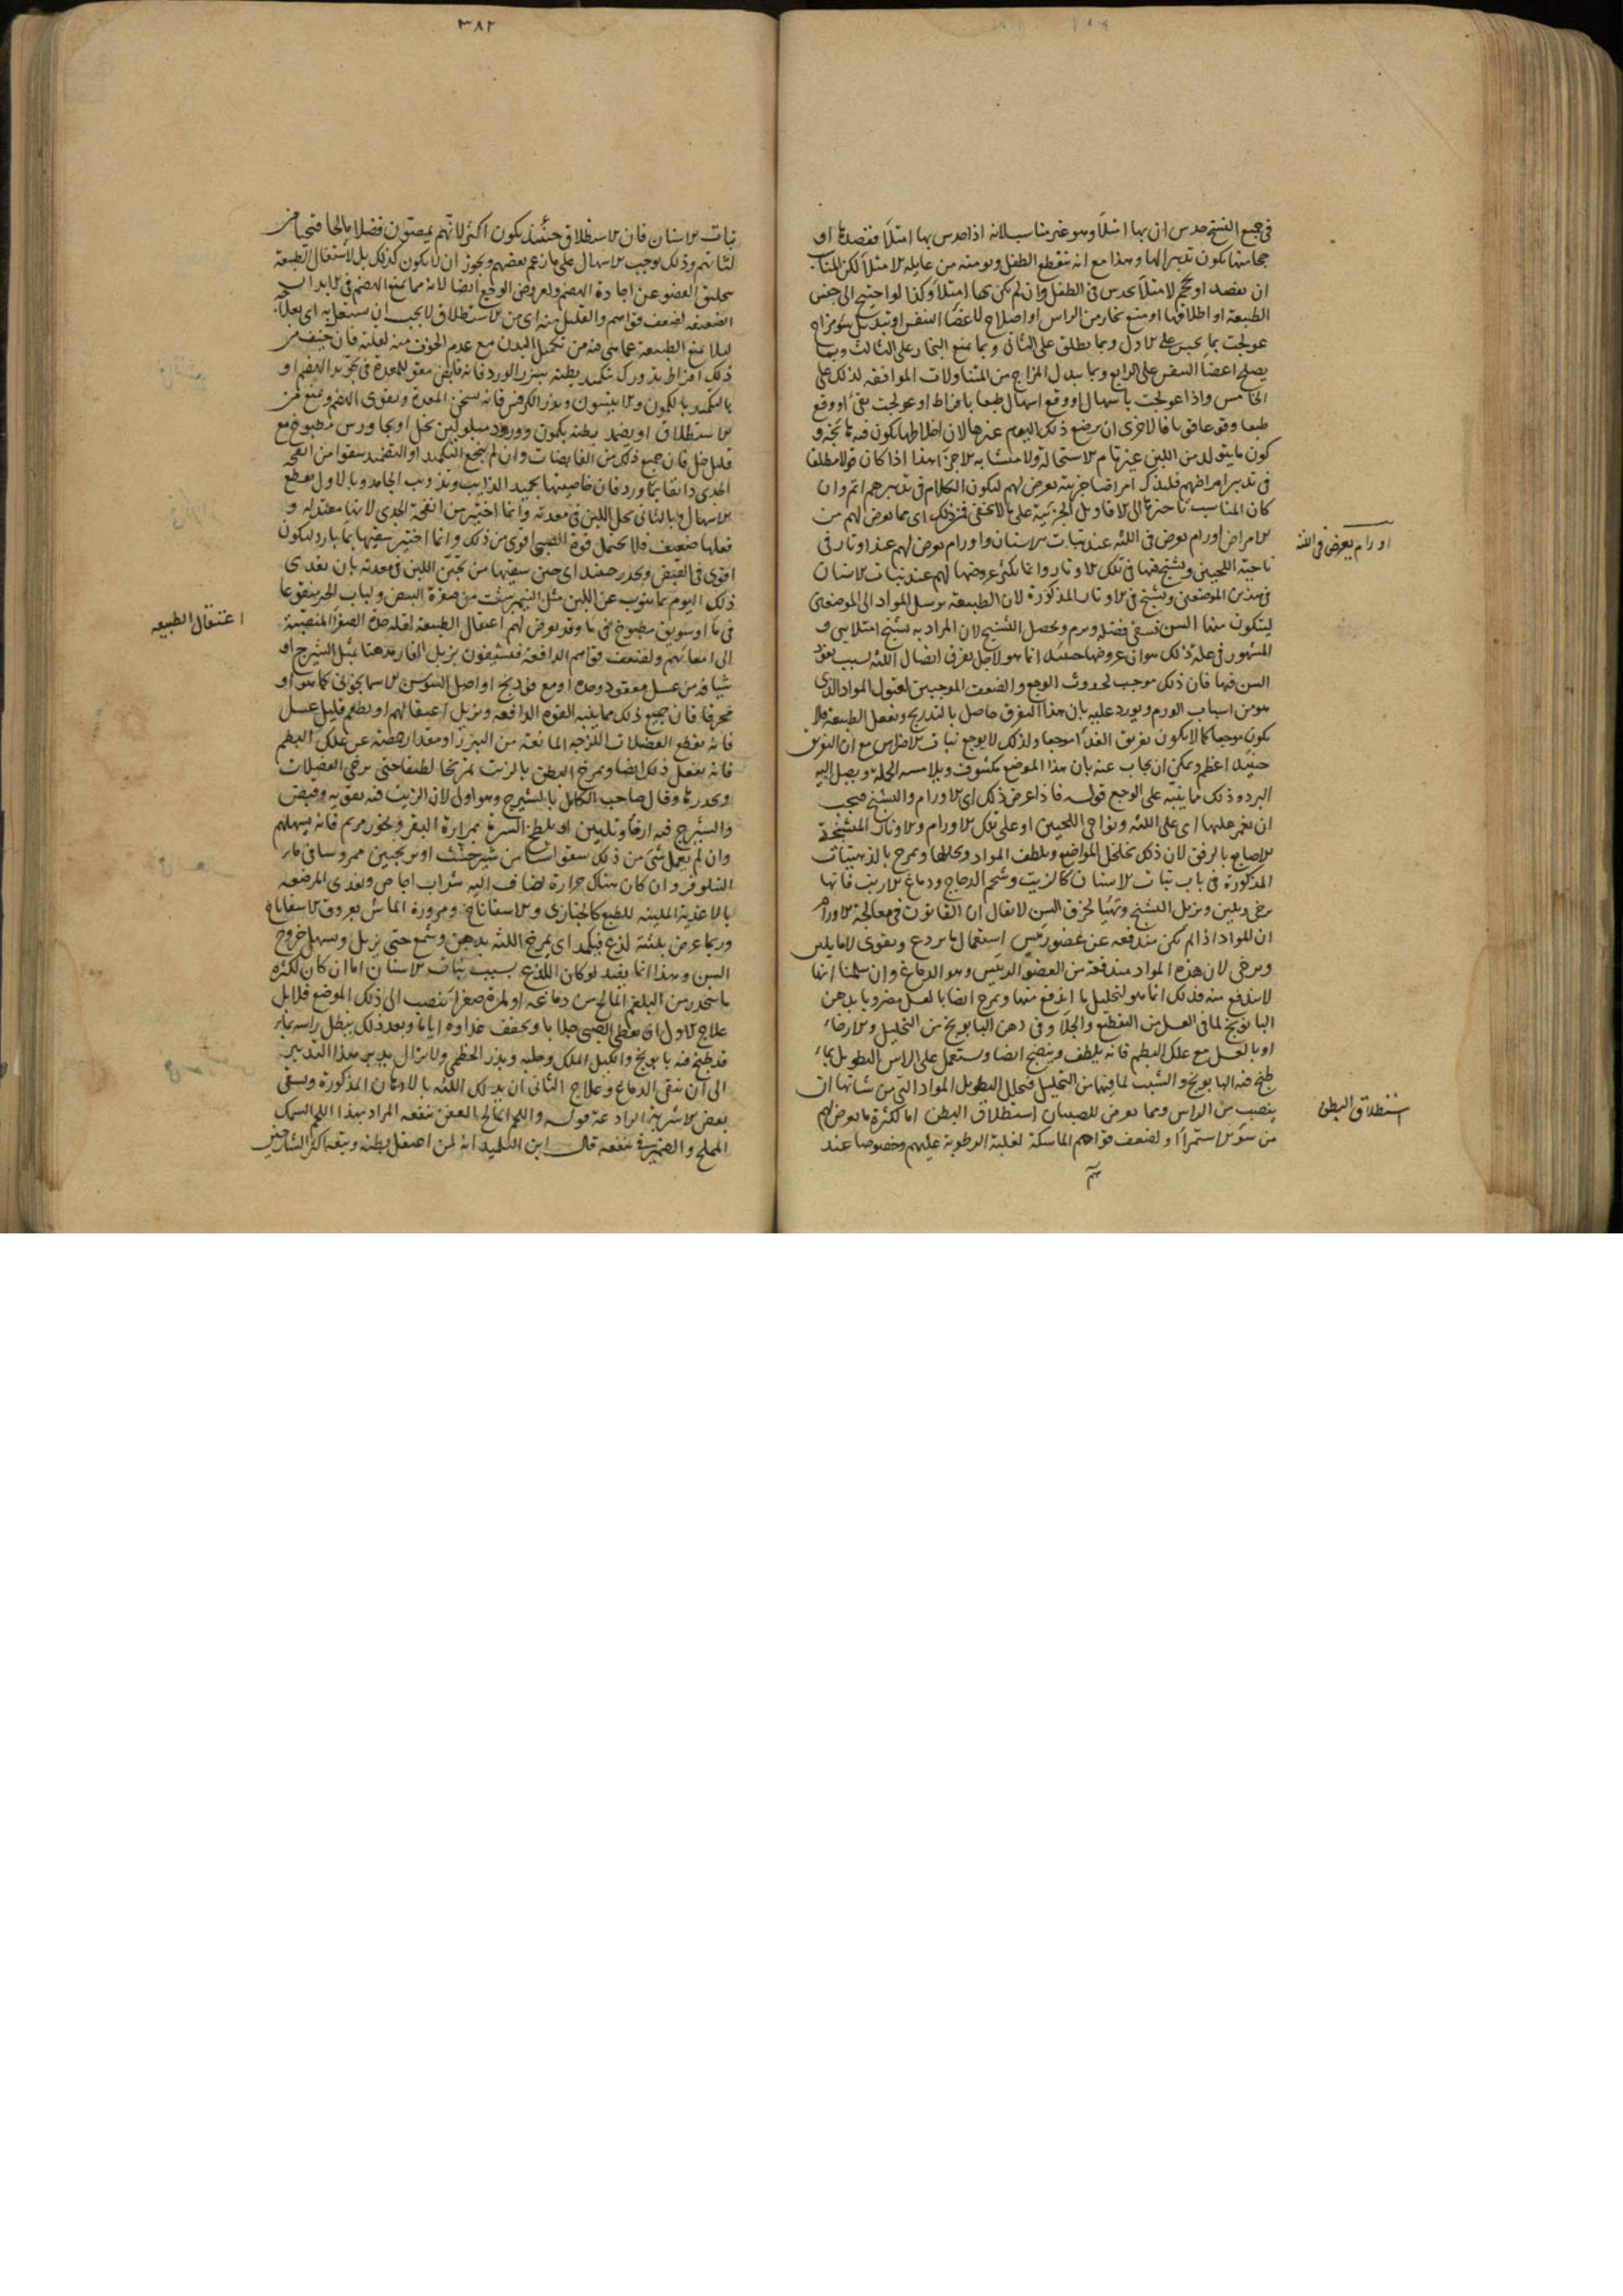 في جميع النسخ حدس ان بها امتلاء وهو غير مناسب لانه اذا حدس بها امتلاء ففصدها او
حجامتها يكون تدبيرا لها وهذا مع انه ينقطع الطفل ويومنه من غايلة الامتلاء لكن المتا
ان يفصد او يحجم لامتلاء يحدس في الطفل وان لم يكن بها امتلاء وكذا لو احتيج الى حبس
الطبيعة او اطلاقها او منع بخار من الراس او اصلاح لاعضاء النفس او تبديل سوء مزاج
عولجت بما يحبس على الاول وبما يطلق على الثاني وبما يمنع البخار على الثالث وبما
يصلح اعضاء النفس على الرابع وبما يبدل المزاج من المتناولات الموافقة لذلك على
الخامس واذا عولجت باسهال او وقع اسهال طبعا بافراط او عولجت بقيء او وقع
طبعا وقوعا قويا فالاحرى ان يرضع ذلك اليوم غيرها لان اخلاطها يكون فيه ثايجة و
كون ما يتولد من اللبن غير تام الاستحالة ولا متشابه الاجزاء هذا اذا كان
في تدبير امراضهم فليذكر امراضا جزيية يعرض لهم ليكون الكلام في تدبيرهم اتم وان
كان المناسب تاخيرها الى الاقاويل الجزئية على ما لا يخفى فمن ذلك اي مما يعرض لهم من
الامراض اورام يعرض في اللثة عند نبات الاسنان واورام يعرض لهم عند اوتار في
ناحية اللحيين وتشنج فيها في تلك الاوتار وانما يكثر عروضها لهم عند نبات الاسنان
في هذين الموضعين وتشنج في الاوتار المذكورة لان الطبيعة ترسل المواد الى الموضعين
ليتكون منها السن فتبقى فضلة ويرم ويحصل التشنج لان المراد به تشنج امتلايي و
المشهور في علة ذلك هو ان عروضها حينئذ انما هو لاجل تفرق اتصال اللثة بسبب نفوذ
السن فيها فان ذلك موجب لحدوث الوجع والضعف الموجبين لقبول المواد الذي
هو من اسباب الورم ويورد عليه بان هذا التفرق حاصل بالتدريج وبفعل الطبيعة فلا
يكون موجعا كما لا يكون تفريق الغذاء موجعا ولذلك لا يوجع نبات الاضراس مع ان التفرق
حينئذ اعظم ويمكن ان يجاب عنه بان هذا الموضع مكشوف ويلامسه الحلمة ويصل اليه
البرد وذلك ما ينبه على الوجع قوله فاذا عرض ذلك اي الاورام والتشنج فيجب
ان يغمز عليها اي على اللثة ونواحي اللحيين او على تلك الاورام والاوتار المتشنجة
بالاصابع بالرفق لان ذلك يخلخل المواضع ويلطف المواد ويحللها ويمرخ بالذهنيات
المذكورة في باب نبات الاسنان كالزيت وشحم الدجاج ودماغ الارنب فانها
يرخي ويلين ويزيل التشنج وتهيا لخرق السن لا يقال ان القانون في معالجة الاورام
ان المواد اذا لم تكن مندفعة عن عضو رئيس استعمال ما يردع ويقوي لا ما يلين
ويرخي لان هذه المواد مندفعة من العضو الرئيس وهو الدماغ وان سلمنا انها
لا يندفع منه فذلك انما هو لتحليل ما اندفع منها ويمرخ ايضا بالعسل مضروبا بدهن
البابونج لما في العسل من التقطيع والجلاء وفي دهن البابونج من التحليل والارخاء
او بالعسل مع علك البطم فانه يلطف وينضج ايضا ويستعمل على الراس النطول بماء
طبخ فيه البابونج والشبت لما فيهما من التحليل فيحلل النطول المواد التي من شانها ان
ينصب من الراس ومما يعرض للصبيان استطلاق البطن اما لكثرة ما يعرض لهم
من سوء الاستمراء او لضعف قواهم الماسكة لغلبة الرطوبة عليهم وخصوصا عند
اورام يعرض في اللثة
استطلاق البطن
٣٨٢
نبات الاسنان فان الاستطلاق حينئذ يكون اكثر لانهم يمصون فضلا مالحا قيحيا من
لثاتهم وذلك يوجب الاسهال على ما زعم بعضهم ويجوز ان لا يكون كذلك بل لاشتغال الطبيعة
بتخليق العضو عن اجادة الهضم ولعروض الوجع ايضا لانه مما يمنع الهضم في الابدان
الضعيفة لضعف قواهم والقليل منه اي من الاستطلاق لا يجب ان يشتغل به اي بعلاجه
ليلا يمنع الطبيعة عما هي فيه من تكميل البدن مع عدم الخوف منه لقلته فان خيف من
ذلك افراط تدورك بتكميد بطنه ببزر الورد فانه قابض مقو للمعدة في تجويد الهضم او
بالتكميد بالكمون والانيسون وبذر الكرفس فانه يسخن المعدة ويقوي الهضم ويمنع من
الاستطلاق او يضمد بطنه بكمون وورد مبلولين بخل او بجاورس مطبوخ مع
قليل خل فان جميع ذلك من القابضات وان لم ينجع التكميد او التضميد سقوا من انفحة
الجدي دانقا بماء بارد فان خاصيتها تجميد الذايب وتذويب الجامد وبالاول يقطع
الاسهال وبالثاني يحل اللبن في معدته وانما اختير من انفحة الجدي لانها معتدلة و
فعلها ضعيف فلا يحتمل قوة الصبي اقوى من ذلك وانما اختير سقيها بماء بارد ليكون
اقوى في القبض ويحذر حينئذ اي حين سقيها من تجبن اللبن في معدته بان يغذى
ذلك اليوم بما ينوب عن اللبن مثل النيمبرشت من صفرة البيض ولباب الخبز منقوعا
في ماء او سويق مطبوخ في ماء وقد يعرض لهم اعتقال الطبيعة لقلة حدة الصفراء المنصبة
الى امعائهم ولضعف قواهم الدافعة فيشيفون بزبل الفار مدهنا بمثل الشيرج او
شيافة من عسل معقود وحده او مع فودنج او اصل السوسن الاسمانجوني كما هو او
محرقا فان جميع ذلك مما ينبه القوة الدافعة ويزيل اعتقالهم او يطعم قليل عسل
فانه يقطع الفضلات اللزجة المانعة من البراز او مقدار حمصة من علك البطم
فانه يفعل ذلك ايضا ويمرخ البطن بالزيت تمريخا لطيفا حتى يرخي الفضلات
ويحدرها وقال صاحب الكامل بالشيرج وهو اولى لان الزيت فيه تقوية وقبض
والشيرج فيه ارخاء وتليين او يلطخ السرة بمرارة البقر وبخور مريم فانه يسهلهم
وان لم يعمل شيء من ذلك سقي اشياء من شيرخشت او ترنجبين ممروسا في ماء
النيلوفر وان كان هناك حرارة يضاف اليه شراب اجاص ويغذى المرضعة
بالاغذية الملينة للطبع كالخبازى والاسفاناخ ومزورة الماش بعروق الاسفاناخ
وربما عرض بلثته لذع فيكمد اي يمرخ اللثة بدهن وشمع حتى يزيل ويسهل خروج
السن وهذا انما يفيد لو كان اللذع بسبب نبات الاسنان اما ان كان لكثرة
ما ينحدر من البلغم المالح من دماغه او لمرة صفراء ينصب الى ذلك الموضع فلا بل
علاج الاول ان يعطى الصبي جلابا ويخفف غذاوه اياما وبعد ذلك ينطل راسه بماء
قد طبخ فيه بابونج واكليل الملك وحلبة وبذر الخطمي ولا يزال يدبر بهذا التدبير
الى ان ينقى الدماغ وعلاج الثاني ان يدلك اللثة بالادهان المذكورة ويسقى
بعض الاشربة المبردة عنه قوله واللحم المالح العفن ينفعه المراد بهذا اللحم السمك
المملح والضمير في ينفعه قال ابن التلميذ انه لمن اعتقل بطنه وتبعه اكثر الشارحين
اعتقال الطبيعه